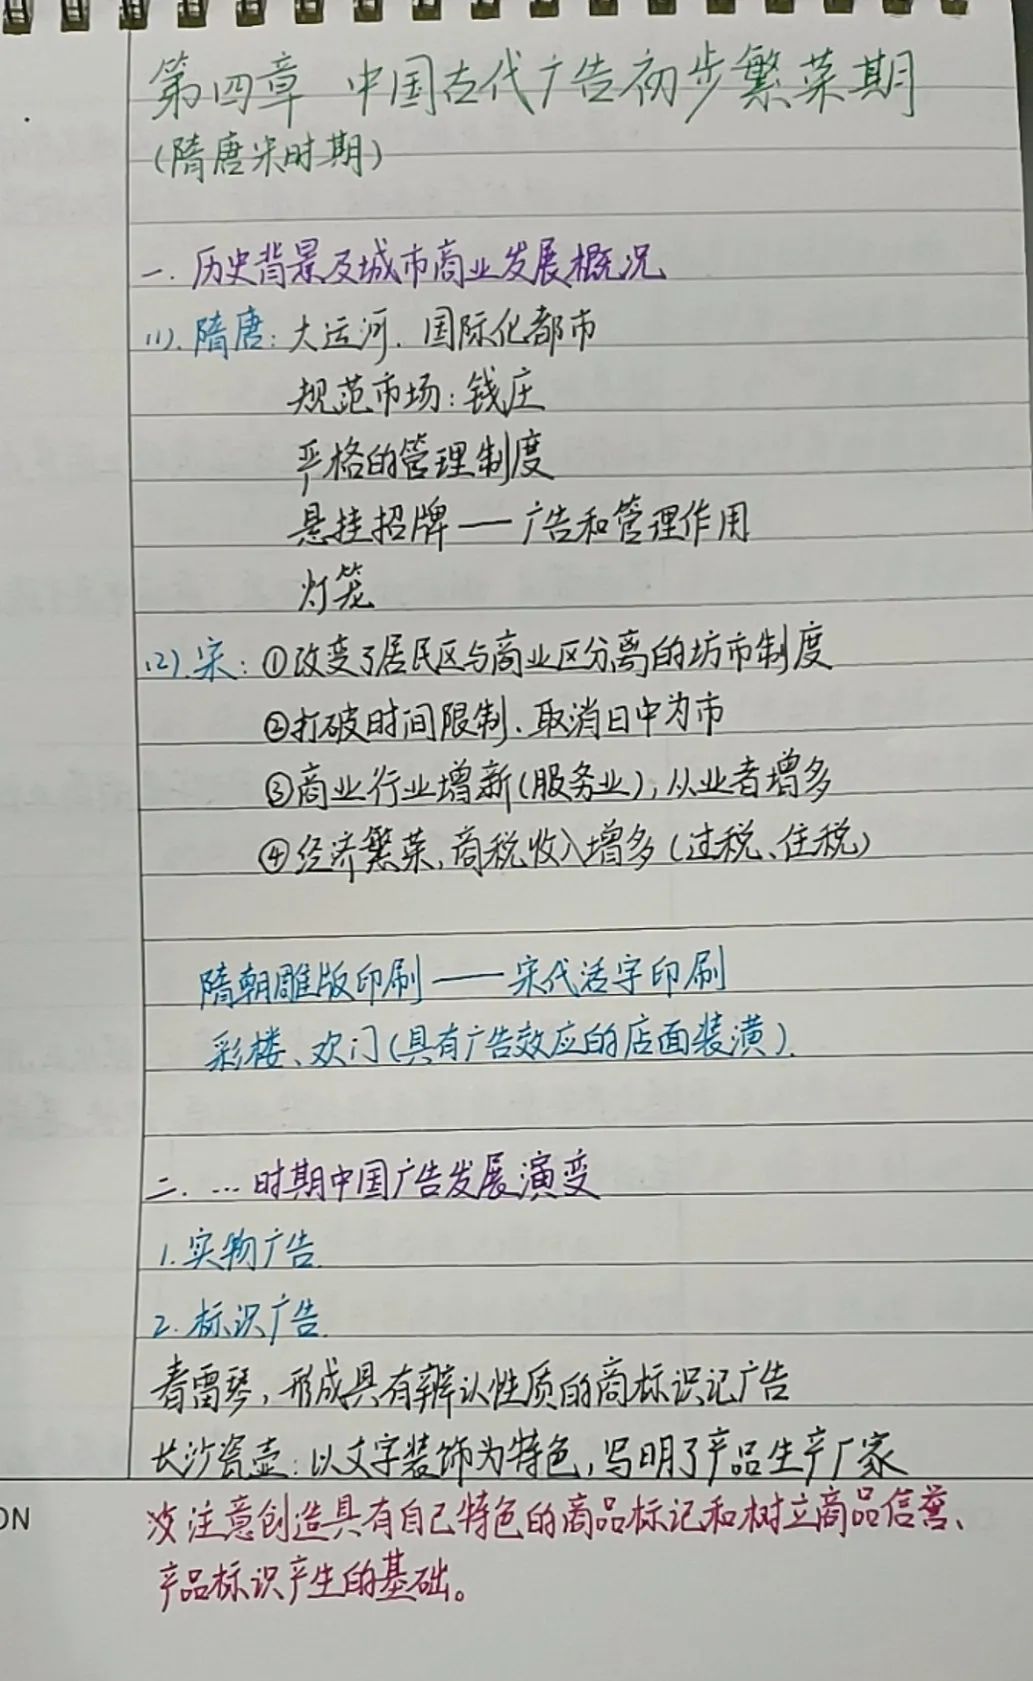 第四章 中国古代广告初步繁荣期
(隋唐宋时期)
一. 历史背景及城市商业发展概况
(1). 隋唐: 大运河. 国际化都市
规范市场: 钱庄
严格的管理制度
悬挂招牌——广告和管理作用
灯笼
(2). 宋: ①改变了居民区与商业区分离的坊市制度
②打破时间限制. 取消日中为市
③商业行业增新(服务业), 从业者增多
④经济繁荣, 商税收入增多(过税、住税)
隋朝雕版印刷——宋代活字印刷
彩楼、欢门(具有广告效应的店面装潢).
二. …时期中国广告发展演变
1. 实物广告.
2. 标识广告.
春雷琴, 形成具有辨认性质的商标识记广告
长沙瓷壶: 以文字装饰为特色, 写明了产品生产厂家
注意创造具有自己特色的商品标记和树立商品信誉、
产品标识产生的基础。
ON